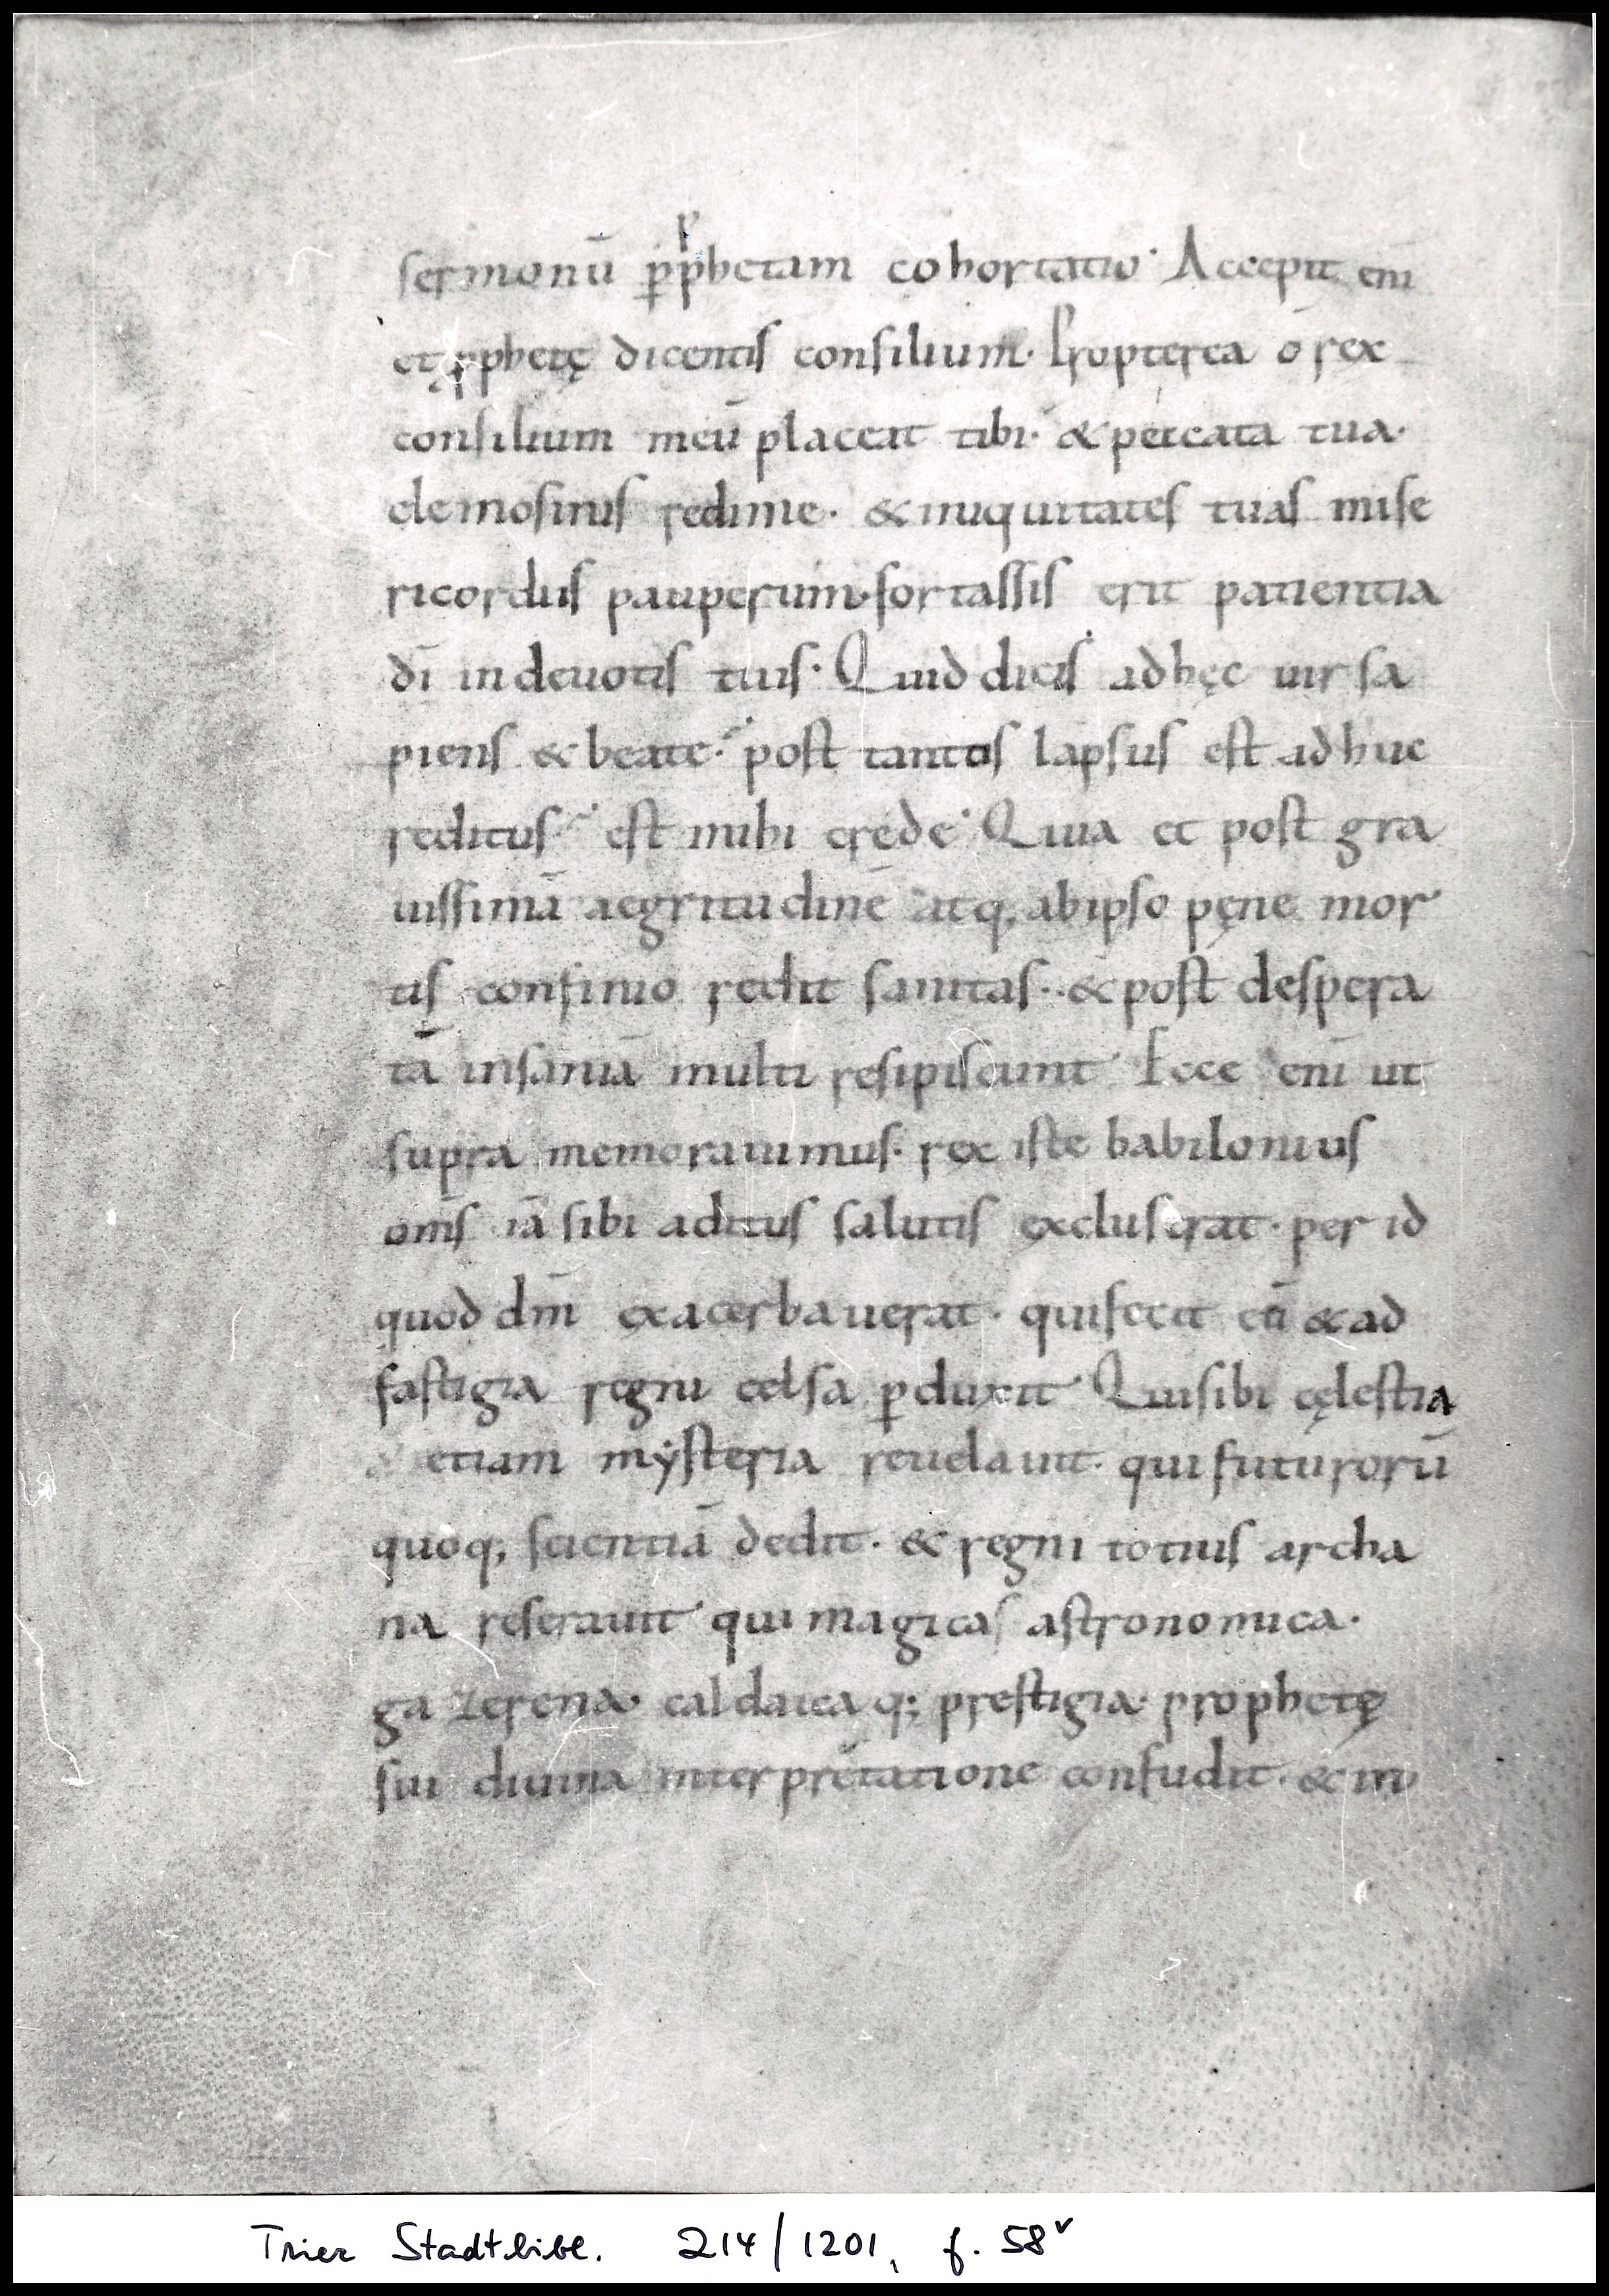 sermonū ꝑ ꝓphetam cohortatio· Accepit enī
et ꝓphetę dicentis consilium· Propterea o rex
consilium meū placeat tibi· & peccata tua·
elemosinis redime· & iniquitates tuas mise
ricordiis pauperum· fortassis erit patientia
dī in devotis tuis· Quid dicis ad hęc uir sa
piens & beate· post tantos lapsus est adhuc
reditus est mihi crede· Quia et post gra
uissimā aegritudinē atq; ab ipso pęne mor
tis confinio redit sanitas· & post despera
tā insaniā multi resipiscunt· Ecce enī ut
supra memorauimus· rex iste babilonius
om̄s iā sibi aditus salutis excluserat· per id
quod dm̄ exacerbauerat· qui fecit eū & ad
fastigia regni celsa ꝑduxit· Qui sibi cęlestia
etiam mẏsteria reuelauit· qui futurorū
quoq; scientiā dedit· & regni totius archa
na reserauit· qui magicas astronomica·
gazerena· caldaicaq; prestigia· prophetę
sui diuina interpretatione confudit· & in
Trier Stadtbibl. 214/1201, f. 58v